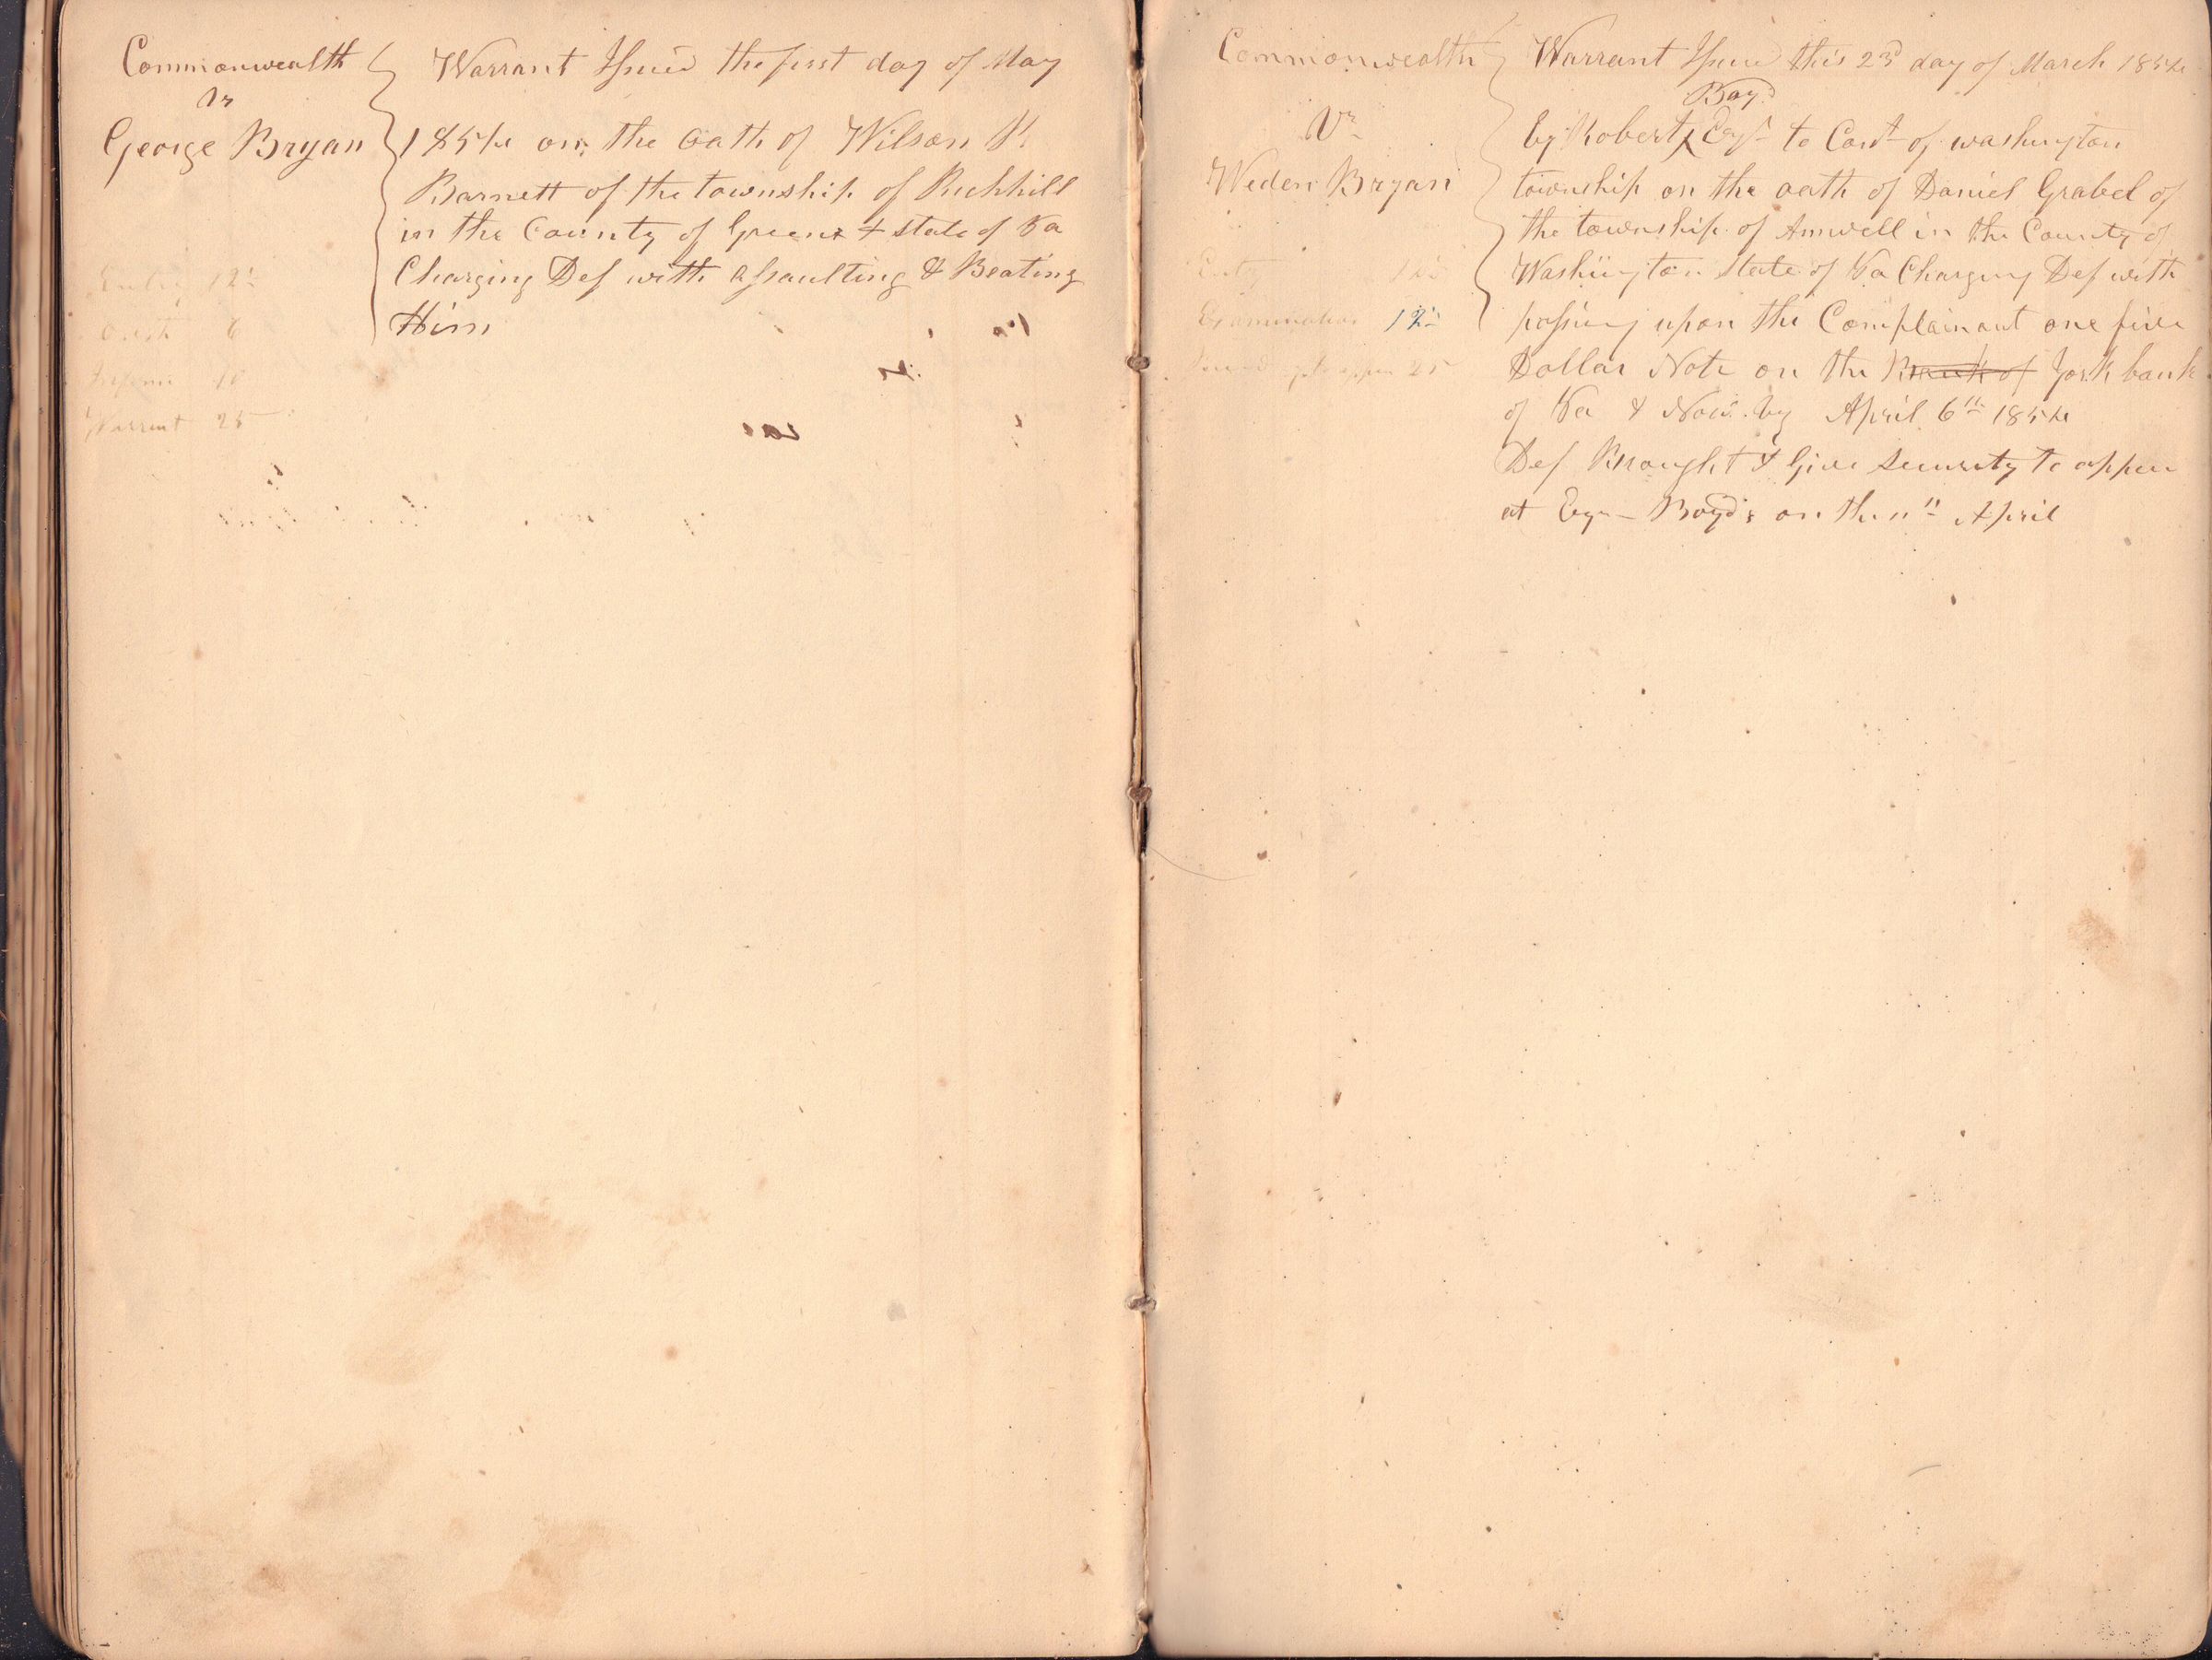 Commonwealth
vs
George Bryan
Warrant Issued the first day of May
1854 on the oath of Wilson
Barnett of the township of Richhill
in the County of Greene & state of Pa
Charging Def with assaulting & Beating
Him
Entry 12
Oath 6
Warrent 25
Commonwealth
Vs
Weden Bryan
Warrant Issue this 23d day of March 1854
Boyd
by Robert Esqr to Const of washington
township on the oath of Daniel Grabel of
the township of Amwell in the County of
Washington State of Pa Charging Def with
passing upon the Complainant one five
Dollar Note on the Bank of York bank
of Pa & Now by April 6th 1854
Def Brought & Give Security to appear
at Esqr Boyd's on the 11th April
Entry
Examination 12
25